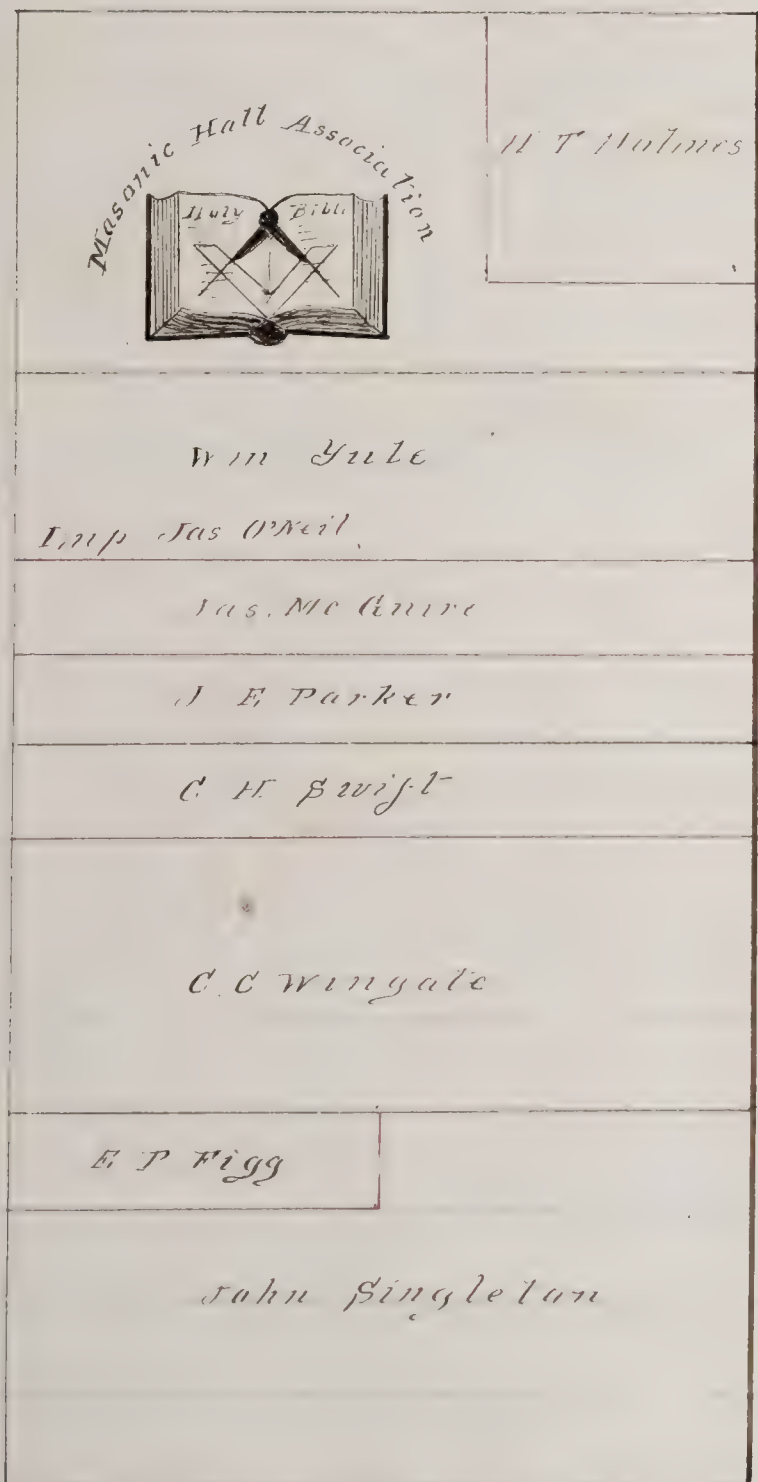 Masonic Hall Association
H T Holmes
Holy Bible
Wm Yule
Imp Jas O'Neil
Jas. Mc Guire
J E Parker
C H Swift
C. C Wingate
E P Figg
John Singleton